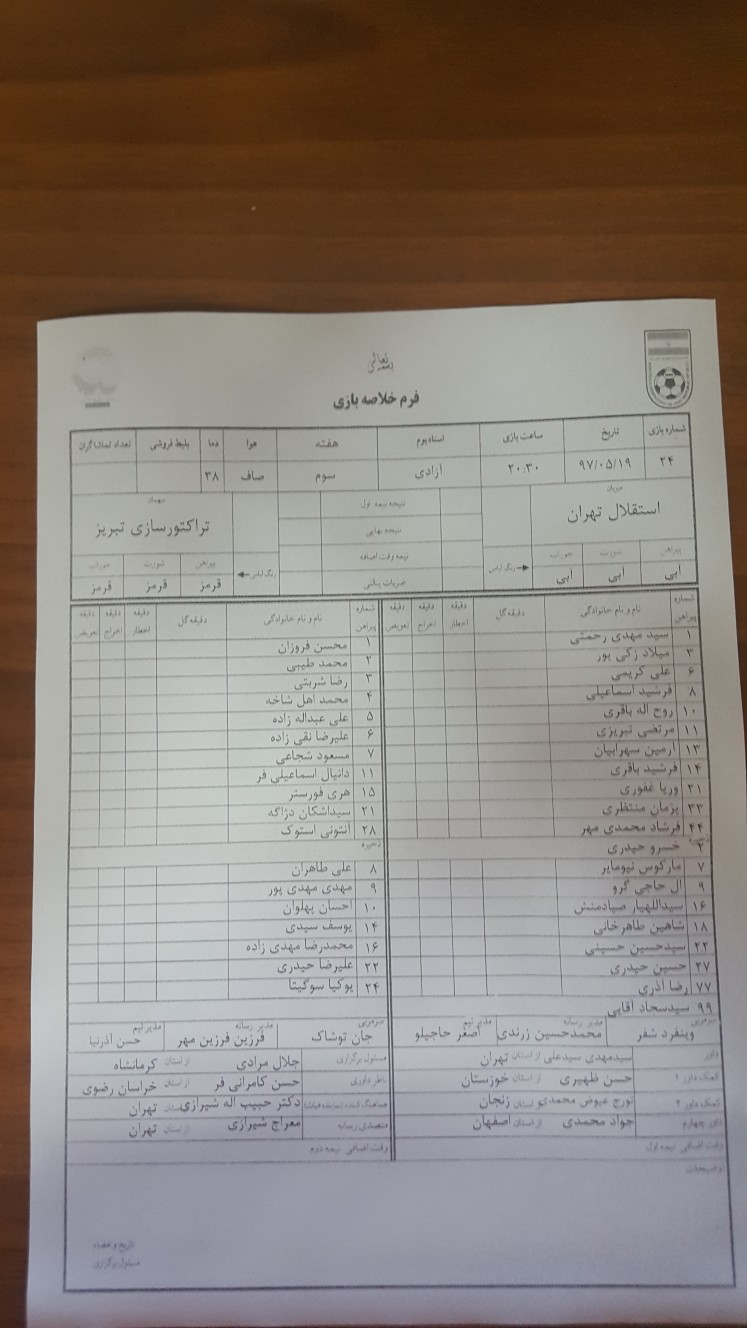 بسمه تعالی
فرم خلاصه بازی
شماره بازی تاریخ ساعت بازی استادیوم هفته هوا دما بلیط فروشی تعداد تماشاگران
۲۴ ۹۷/۰۵/۱۹ ۲۰.۳۰ آزادی سوم صاف ۳۸
میزبان نتیجه نیمه اول میهمان
استقلال تهران نتیجه نهایی تراکتورسازی تبریز
پیراهن شورت جوراب رنگ لباس نیمه وقت اضافه رنگ لباس پیراهن شورت جوراب
آبی آبی آبی ضربات پنالتی قرمز قرمز قرمز
شماره پیراهن نام و نام خانوادگی دقیقه گل دقیقه اخطار دقیقه اخراج دقیقه تعویض شماره پیراهن نام و نام خانوادگی دقیقه گل دقیقه اخطار دقیقه اخراج دقیقه تعویض
۱ سید مهدی رحمتی ۱ محسن فروزان
۳ میلاد زکی پور ۲ محمد طیبی
۶ علی کریمی ۳ رضا شربتی
۸ فرشید اسماعیلی ۴ محمد اهل شاخه
۱۰ روح اله باقری ۵ علی عبداله زاده
۱۱ مرتضی تبریزی ۶ علیرضا نقی زاده
۱۳ آرمین سهرابیان ۷ مسعود شجاعی
۱۴ فرشید باقری ۱۱ دانیال اسماعیلی فر
۲۱ وریا غفوری ۱۵ هری فورستر
۳۳ پژمان منتظری ۲۱ سیداشکان دژاگه
۴۴ فرشاد محمدی مهر ۲۸ آنتونی استوک
۲ خسرو حیدری ذخیره
۷ مارکوس نیومایر ۸ علی طاهران
۹ ال حاجی گرو ۹ مهدی مهدی پور
۱۶ سیداللهیار صیادمنش ۱۰ احسان پهلوان
۱۸ شاهین طاهرخانی ۱۴ یوسف سیدی
۲۲ سیدحسین حسینی ۱۶ محمدرضا مهدی زاده
۲۷ حسین حیدری ۲۲ علیرضا حیدری
۷۷ رضا آذری ۲۴ یوکیا سوگیتا
۹۹ سیدسجاد آقایی
سرمربی مدیر رسانه مدیر تیم سرمربی مدیر رسانه مدیر تیم
وینفرد شفر محمدحسین زرندی اصغر حاجیلو جان توشاک فرزین فرزین مهر حسن آذرنیا
داور سیدمهدی سیدعلی از استان تهران مسئول برگزاری جلال مرادی از استان کرمانشاه
کمک داور ۱ حسن ظهیری از استان خوزستان ناظر داوری حسن کامرانی فر از استان خراسان رضوی
کمک داور ۲ تورج عیوض محمدی از استان زنجان هماهنگ کننده (نماینده هیات) دکتر حبیب اله شیرازی از استان تهران
داور چهارم جواد محمدی از استان اصفهان متصدی رسانه معراج شیرازی از استان تهران
وقت اضافی نیمه اول وقت اضافی نیمه دوم
توضیحات
تاریخ و امضاء
مسئول برگزاری